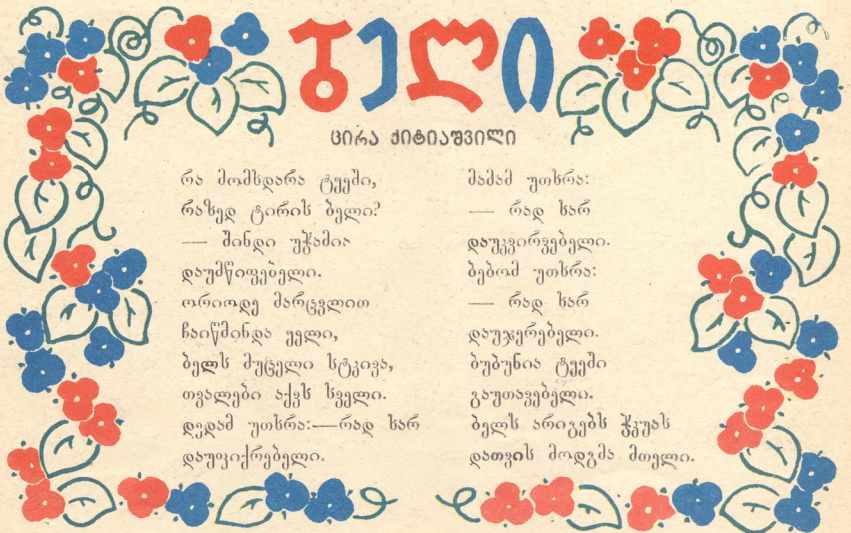 ბელი
ცირა ქიტიაშვილი
რა მომხდარა ტყეში,
რაზედ ტირის ბელი?
— შინდი უჭამია
დაუმწიფებელი.
ორიოდე მარცვლით
ჩაიწმინდა ყელი,
ბელს მუცელი სტკივა,
თვალები აქვს სველი.
დედამ უთხრა:—რად ხარ
დაუფიქრებელი.
მამამ უთხრა:
— რად ხარ
დაუკვირვებელი.
ბებომ უთხრა:
— რად ხარ
დაუჯერებელი.
ბუბუნია ტყეში
გაუთავებელი.
ბელს არიგებს ჭკუას
დათვის მოდგმა მთელი.